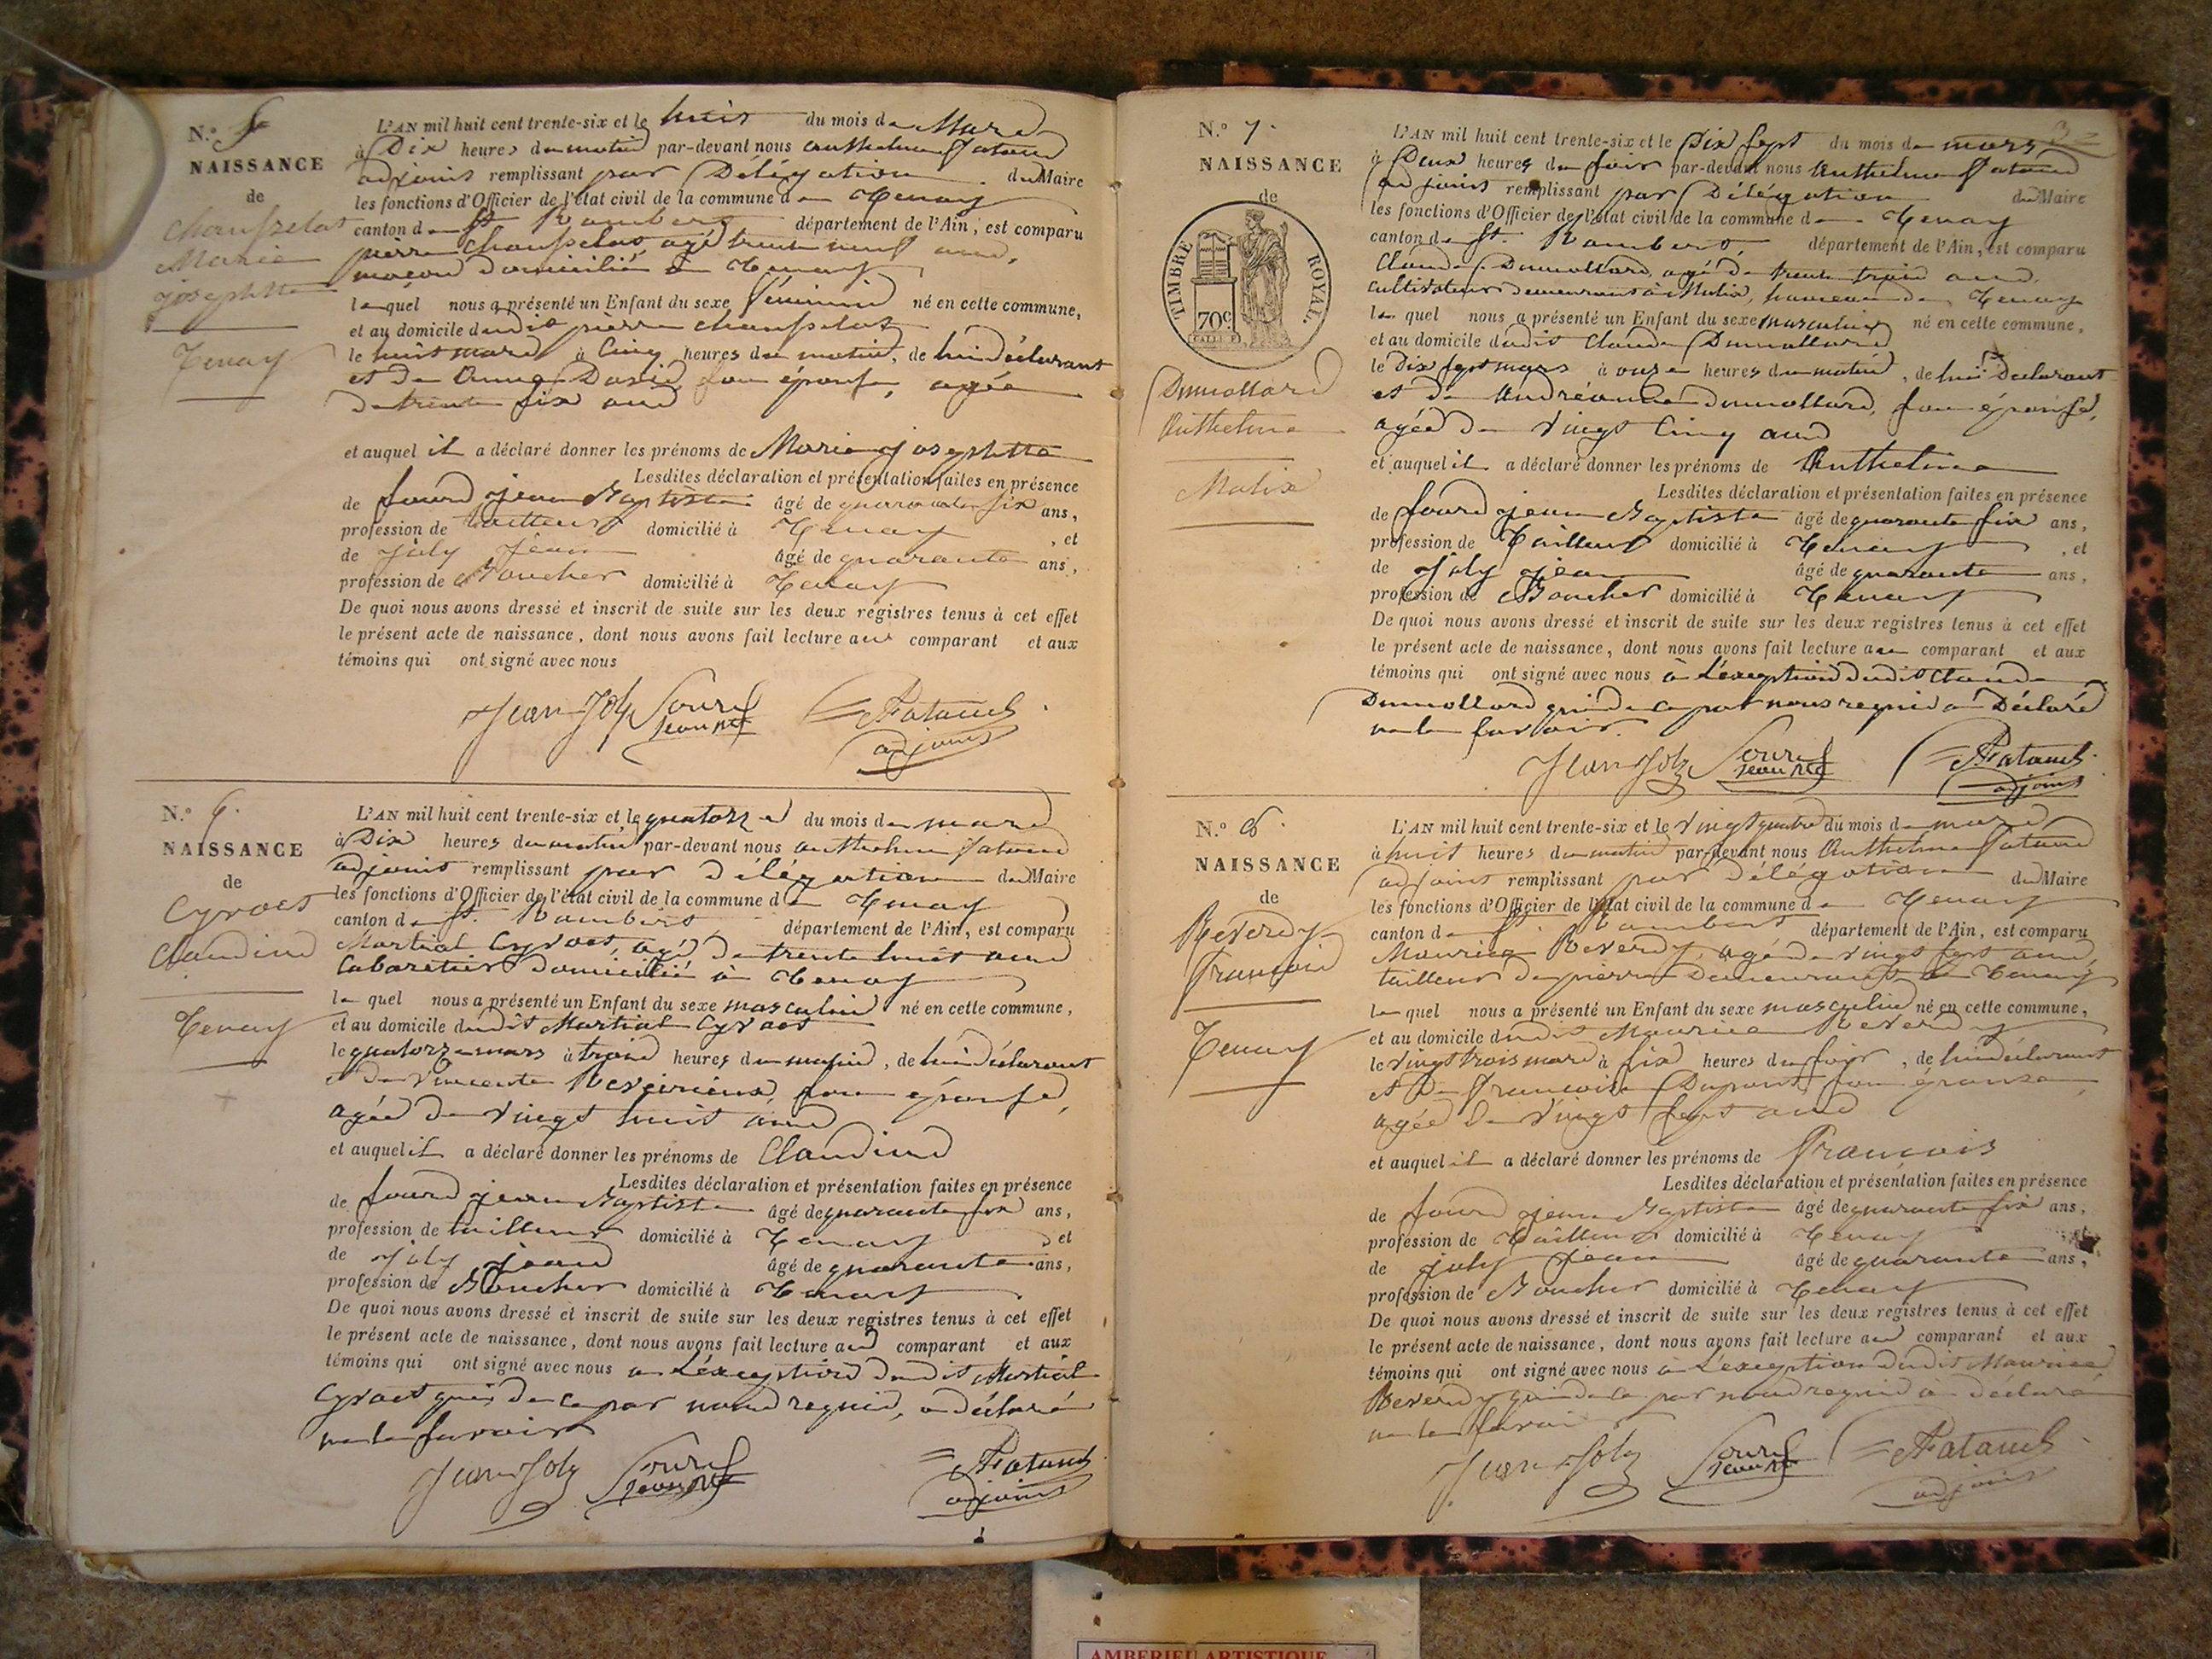 N.º 5
NAISSANCE
de
Chanspelas
Marie
josephtte
Tenay
L'AN mil huit cent trente-six et le huit du mois de Mars
à Dix heures du matin par-devant nous anthelme fatand
adjoint remplissant par Délégation du Maire
les fonctions d'Officier de l'état civil de la commune de Tenay
canton de St Rambert département de l'Ain, est comparu
pierre agé trente neuf ans,
maçon Domicilié à Tenay
lequel nous a présenté un Enfant du sexe féminin né en cette commune,
et au domicile dudit pierre
le huit mars à Cinq heures du matin, de lui déclarant
et de Anne son épouse, agée
de trente six ans
et auquel il a déclaré donner les prénoms de Marie josephtte
Lesdites déclaration et présentation faites en présence
de jean Baptiste âgé de quarante six ans,
profession de tailleur domicilié à Tenay, et
de Joly Jean âgé de quarante ans,
profession de Boucher domicilié à Tenay
De quoi nous avons dressé et inscrit de suite sur les deux registres tenus à cet effet
le présent acte de naissance, dont nous avons fait lecture au comparant et aux
témoins qui ont signé avec nous
Jean Joly
adjoint
N.º 6.
NAISSANCE
de
Cyvoct
Claudius
Tenay
L'AN mil huit cent trente-six et le quatorze du mois de mars
à Dix heures du matin par-devant nous anthelme fatand
adjoint remplissant par délégation du Maire
les fonctions d'Officier de l'état civil de la commune de Tenay
canton de St. Rambert département de l'Ain, est comparu
Martial Cyvoct, agé de trente huit ans
Cabaretier domicilié à Tenay
le quel nous a présenté un Enfant du sexe masculin né en cette commune,
et au domicile dudit Martial Cyvoct
le quatorze mars à trois heures du matin, de lui déclarant
et de Vincente son épouse,
agée de Vingt huit ans
et auquel il a déclaré donner les prénoms de Claudius
Lesdites déclaration et présentation faites en présence
de jean Baptiste âgé de quarante six ans,
profession de tailleur domicilié à Tenay et
de Joly jean âgé de quarante ans,
profession de Boucher domicilié à Tenay
De quoi nous avons dressé et inscrit de suite sur les deux registres tenus à cet effet
le présent acte de naissance, dont nous avons fait lecture au comparant et aux
témoins qui ont signé avec nous à L'exception dudit Martial
Cyvoct qui de ce par nous requis, a déclaré
ne le savoir
Jean Joly
adjoint
N.º 7.
NAISSANCE
de
TIMBRE ROYAL.
70c
Dumollard
Anthelme
Malix
L'AN mil huit cent trente-six et le Dix sept du mois de mars
à Deux heures du soir par-devant nous Anthelme fatand
adjoint remplissant par Délégation du Maire
les fonctions d'Officier de l'état civil de la commune de Tenay
canton de St. Rambert département de l'Ain, est comparu
Claude Dumollard, agé de trente trois ans,
cultivateur demeurant à Malix, hameau de Tenay
le quel nous a présenté un Enfant du sexe masculin né en cette commune,
et au domicile dudit Claude Dumollard
le Dix sept mars à onze heures du matin, de lui déclarant
et de Dumollard, son épouse,
agée de Vingt Cinq ans
et auquel il a déclaré donner les prénoms de Anthelme
Lesdites déclaration et présentation faites en présence
de jean Baptiste âgé de quarante six ans,
profession de Tailleur domicilié à Tenay, et
de Joly jean âgé de quarante ans,
profession de Boucher domicilié à Tenay
De quoi nous avons dressé et inscrit de suite sur les deux registres tenus à cet effet
le présent acte de naissance, dont nous avons fait lecture au comparant et aux
témoins qui ont signé avec nous à L'exception dudit Claude
Dumollard qui de ce par nous requis a Déclaré
ne le savoir.
Jean Joly
adjoint
N.º 8.
NAISSANCE
de
Reverdy
François
Tenay
L'AN mil huit cent trente-six et le Vingt quatre du mois de mars
à huit heures du matin par-devant nous Anthelme fatand
adjoint remplissant par délégation du Maire
les fonctions d'Officier de l'état civil de la commune de Tenay
canton de St. Rambert département de l'Ain, est comparu
Maurice Reverdy, agé de vingt sept ans,
tailleur de pierre demeurant à Tenay
le quel nous a présenté un Enfant du sexe masculin né en cette commune,
et au domicile dudit Maurice Reverdy
le Vingt trois mars à six heures du soir, de lui déclarant
et de Françoise Dupont son épouse
agée de Vingt sept ans
et auquel il a déclaré donner les prénoms de François
Lesdites déclaration et présentation faites en présence
de jean Baptiste âgé de quarante six ans,
profession de Tailleur domicilié à Tenay
de joly Jean âgé de quarante ans,
profession de Boucher domicilié à Tenay
De quoi nous avons dressé et inscrit de suite sur les deux registres tenus à cet effet
le présent acte de naissance, dont nous avons fait lecture au comparant et aux
témoins qui ont signé avec nous à L'exception dudit Maurice
Reverdy qui de ce par nous requis a déclaré
ne le savoir
Jean Joly
adjoint
AMBERIEU ARTISTIQUE